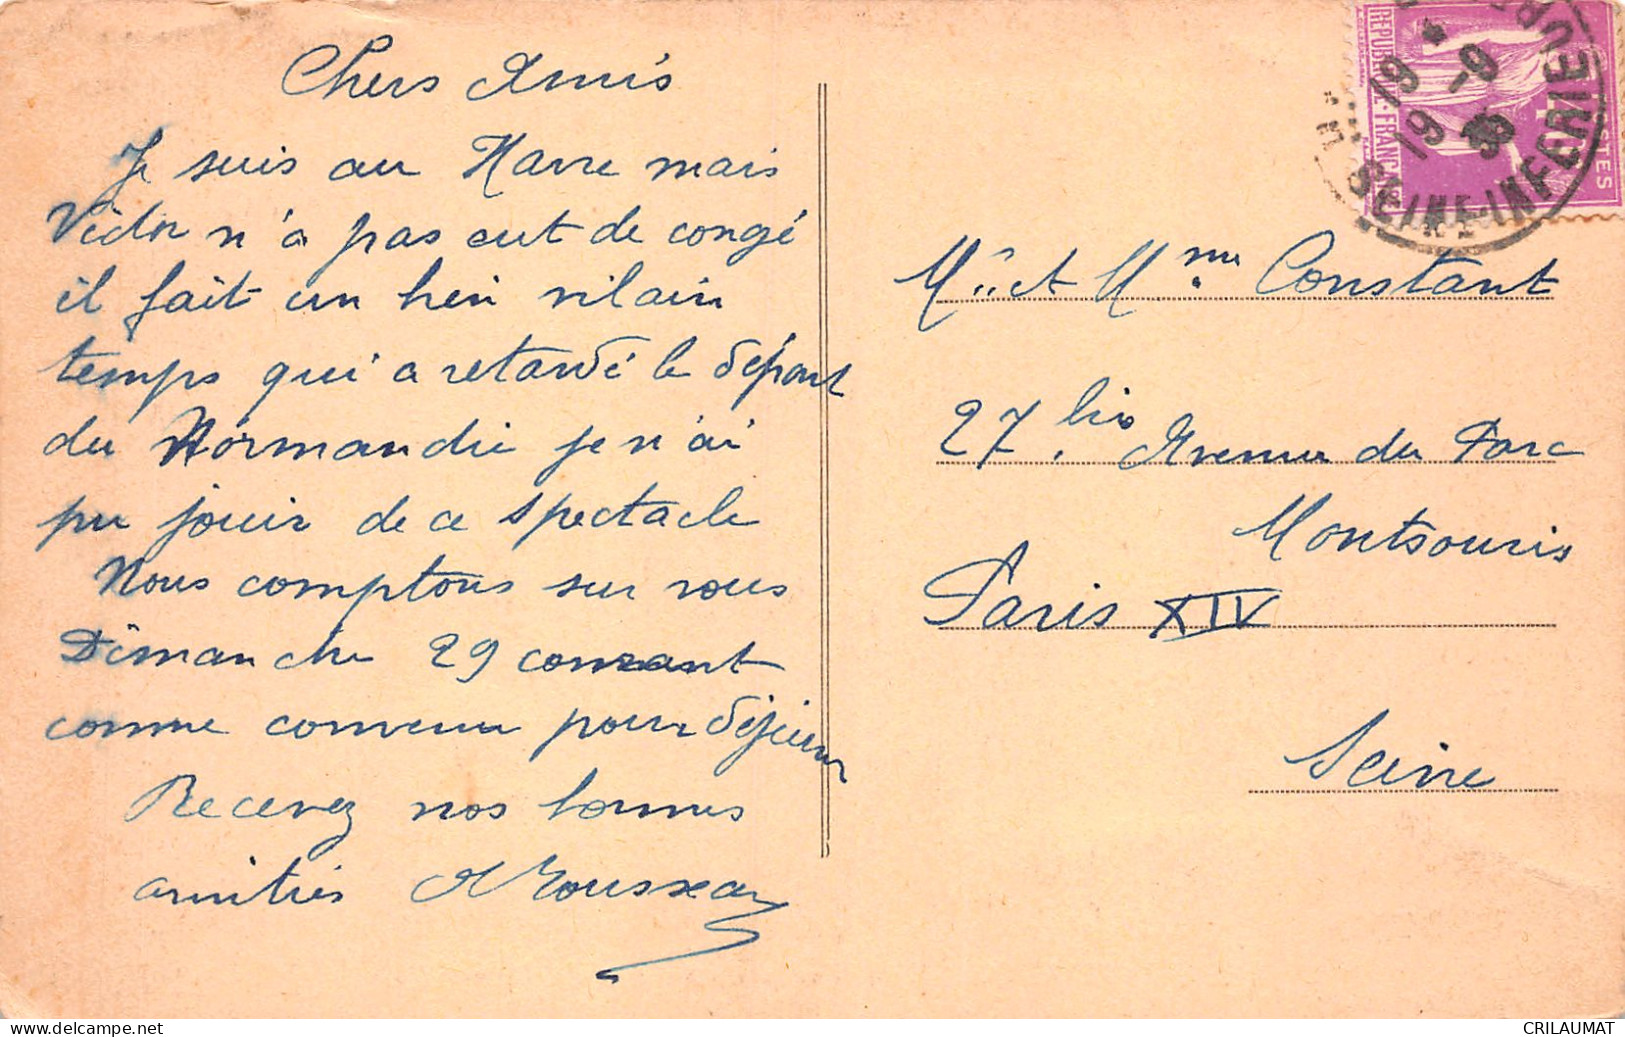 Chers Amis
Je suis au Havre mais
Victor n'a pas eut de congé
il fait un bien vilain
temps qui a retardé le départ
du Normandie je n'ai
pu jouir de ce spectacle
Nous comptons sur vous
Dimanche 29 courant
comme convenu pour déjeuner
Recevez nos bonnes
amitiés Rousseau
REPUBLIQUE FRANÇAISE
POSTES
19
19 - 9
SEINE-INFERIEURE
Mr et Mme Constant
27 bis Avenue du Parc
Montsouris
Paris XIV
Seine
www.delcampe.net
CRILAUMAT